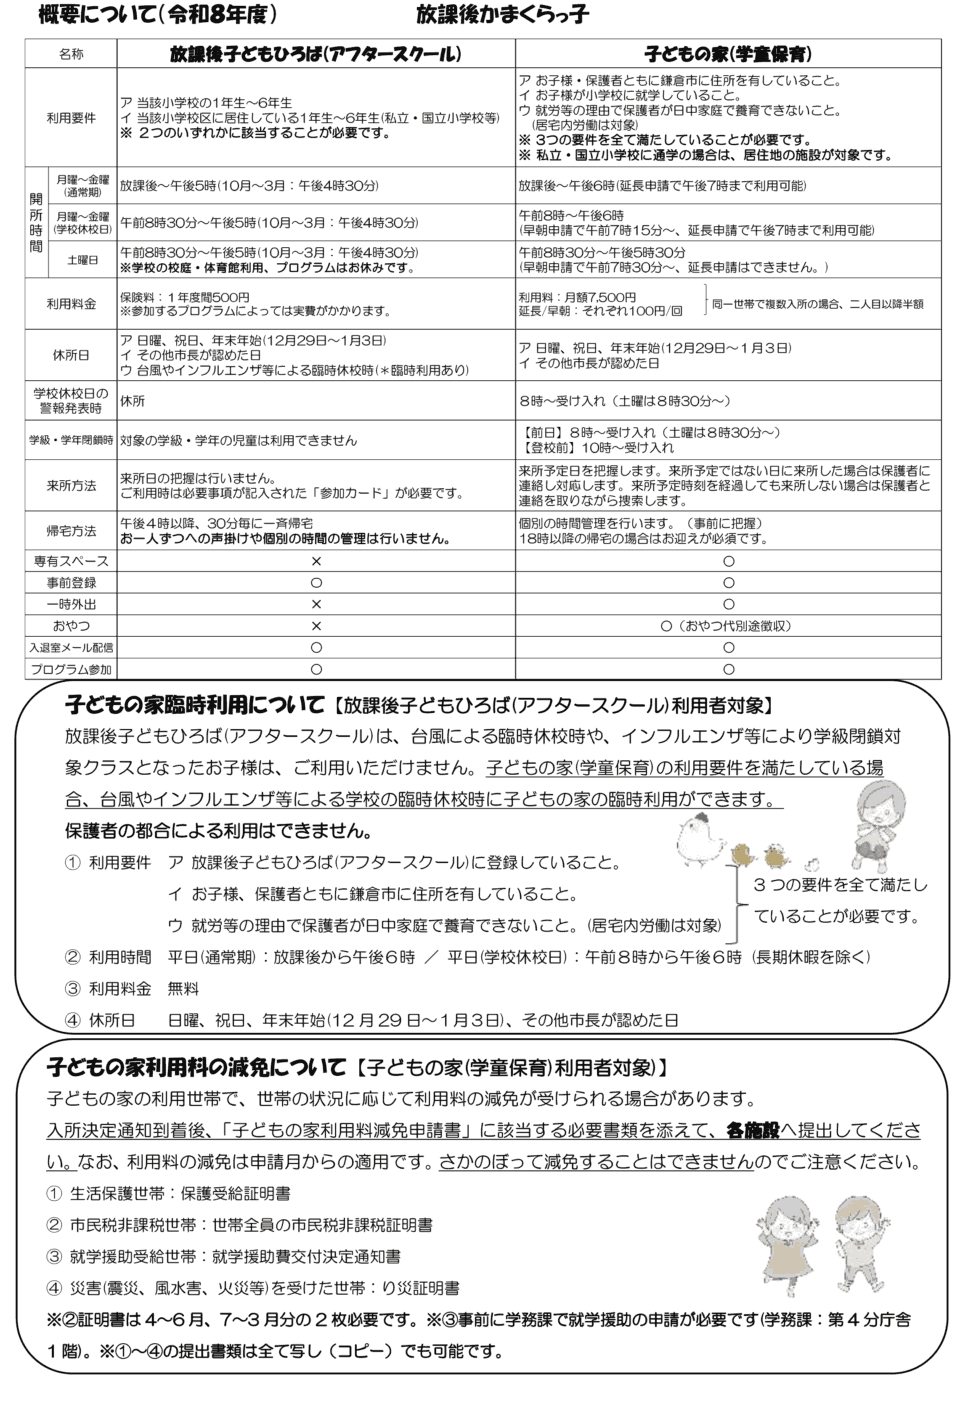 概要について(令和8年度)　放課後かまくらっ子
名称　放課後子どもひろば(アフタースクール)　子どもの家(学童保育)
利用要件
ア 当該小学校の1年生～6年生
イ 当該小学校区に居住している1年生～6年生(私立・国立小学校等)
※ 2つのいずれかに該当することが必要です。
ア お子様・保護者ともに鎌倉市に住所を有していること。
イ お子様が小学校に就学していること。
ウ 就労等の理由で保護者が日中家庭で養育できないこと。
(居宅内労働は対象)
※ 3つの要件を全て満たしていることが必要です。
※ 私立・国立小学校に通学の場合は、居住地の施設が対象です。
開所時間
月曜～金曜
(通常期)
放課後～午後5時(10月～3月：午後4時30分)
放課後～午後6時(延長申請で午後7時まで利用可能)
月曜～金曜
(学校休校日)
午前8時30分～午後5時(10月～3月：午後4時30分)
午前8時～午後6時
(早朝申請で午前7時15分～、延長申請で午後7時まで利用可能)
土曜日
午前8時30分～午後5時(10月～3月：午後4時30分)
※学校の校庭・体育館利用、プログラムはお休みです。
午前8時30分～午後5時30分
(早朝申請で午前7時30分～、延長申請はできません。)
利用料金
保険料：1年度間500円
※参加するプログラムによっては実費がかかります。
利用料：月額7,500円
延長/早朝：それぞれ100円/回
同一世帯で複数入所の場合、二人目以降半額
休所日
ア 日曜、祝日、年末年始(12月29日～1月3日)
イ その他市長が認めた日
ウ 台風やインフルエンザ等による臨時休校時(＊臨時利用あり)
ア 日曜、祝日、年末年始(12月29日～1月3日)
イ その他市長が認めた日
学校休校日の
警報発表時
休所
8時～受け入れ（土曜は8時30分～）
学級・学年閉鎖時
対象の学級・学年の児童は利用できません
【前日】8時～受け入れ（土曜は8時30分～）
【登校前】10時～受け入れ
来所方法
来所日の把握は行いません。
ご利用時は必要事項が記入された「参加カード」が必要です。
来所予定日を把握します。来所予定ではない日に来所した場合は保護者に
連絡し対応します。来所予定時刻を経過しても来所しない場合は保護者と
連絡を取りながら捜索します。
帰宅方法
午後4時以降、30分毎に一斉帰宅
お一人ずつへの声掛けや個別の時間の管理は行いません。
個別の時間管理を行います。（事前に把握）
18時以降の帰宅の場合はお迎えが必須です。
専有スペース　×　○
事前登録　○　○
一時外出　×　○
おやつ　×　○（おやつ代別途徴収）
入退室メール配信　○　○
プログラム参加　○　○
子どもの家臨時利用について【放課後子どもひろば(アフタースクール)利用者対象】
放課後子どもひろば(アフタースクール)は、台風による臨時休校時や、インフルエンザ等により学級閉鎖対
象クラスとなったお子様は、ご利用いただけません。子どもの家(学童保育)の利用要件を満たしている場
合、台風やインフルエンザ等による学校の臨時休校時に子どもの家の臨時利用ができます。
保護者の都合による利用はできません。
① 利用要件　ア 放課後子どもひろば(アフタースクール)に登録していること。
イ お子様、保護者ともに鎌倉市に住所を有していること。
ウ 就労等の理由で保護者が日中家庭で養育できないこと。(居宅内労働は対象)
3つの要件を全て満たし
ていることが必要です。
② 利用時間　平日(通常期)：放課後から午後6時 ／ 平日(学校休校日)：午前8時から午後6時 (長期休暇を除く)
③ 利用料金　無料
④ 休所日　日曜、祝日、年末年始(12月29日～1月3日)、その他市長が認めた日
子どもの家利用料の減免について【子どもの家(学童保育)利用者対象)】
子どもの家の利用世帯で、世帯の状況に応じて利用料の減免が受けられる場合があります。
入所決定通知到着後、「子どもの家利用料減免申請書」に該当する必要書類を添えて、各施設へ提出してくださ
い。なお、利用料の減免は申請月からの適用です。さかのぼって減免することはできませんのでご注意ください。
① 生活保護世帯：保護受給証明書
② 市民税非課税世帯：世帯全員の市民税非課税証明書
③ 就学援助受給世帯：就学援助費交付決定通知書
④ 災害(震災、風水害、火災等)を受けた世帯：り災証明書
※②証明書は4～6月、7～3月分の2枚必要です。※③事前に学務課で就学援助の申請が必要です(学務課：第4分庁舎
1階)。※①～④の提出書類は全て写し（コピー）でも可能です。